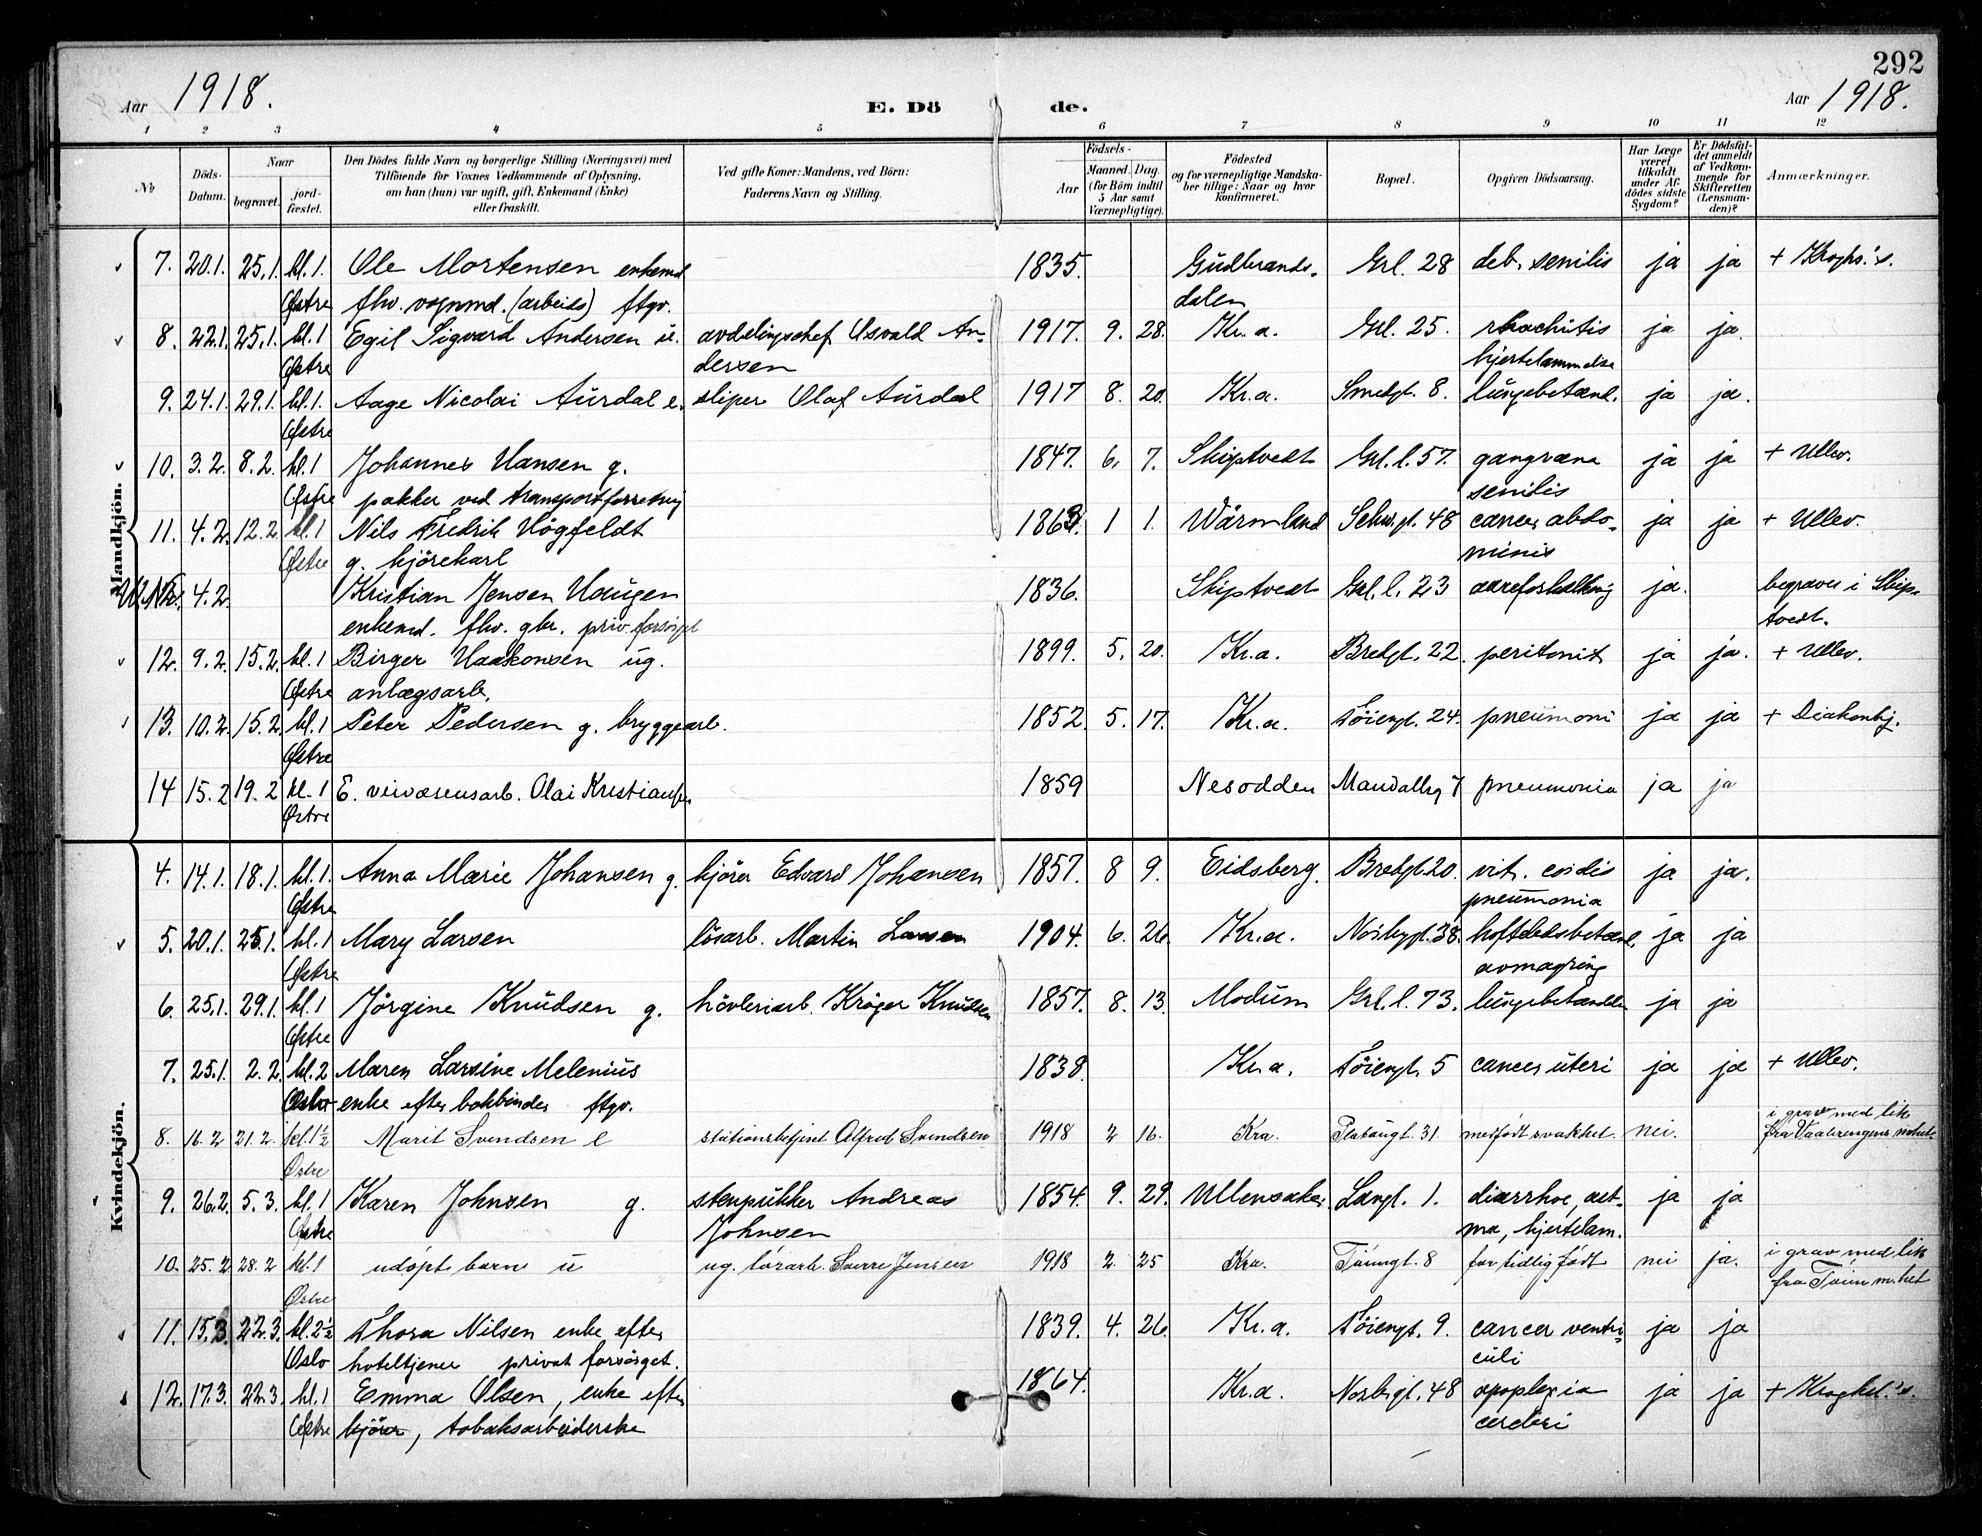 292
Aar 1918. E. Dö de. Aar 1918.
1 2 3 4 5 6 7 8 9 10 11 12
No
Döds-Datum.
Naar
begravet.
jord-fæstet.
Den Dödes fulde Navn og borgerlige Stilling (Næringsvei) med
Tilföiende for Voxnes Vedkommende af Oplysning,
om han (hun) var ugift, gift, Enkemand (Enke)
eller fraskilt.
Ved gifte Koner: Mandens, ved Börn:
Faderens Navn og Stilling.
Födsels-
Aar
Maaned. Dag.
(for Börn indtil
5 Aar samt
Værnepligtige).
Födested
og for værnepligtige Mandska-
ber tillige: Naar og hvor
konfirmeret.
Bopæl.
Opgiven Dödsaarsag.
Har Læge
været
tilkaldt
under Af-
dödes sidste
Sygdom?
Er Dödsfal-
det anmeldt
af Vedkom-
mende for
Skifteretten
(Lensman-
den)?
Anmærkninger.
Mandkjön.
7. 20.1. 25.1. kl. 1. Ole Mortensen enkemd. 1835. Gudbrands- Grl. 28 deb. senilis ja ja + Kroghs.'s.
Østre fhv. vognmd. (arbeids) ftgv. dalen
8. 22.1. 25.1. kl. 1 Egil Sigvard Andersen u. avdelingschef Osvald An- 1917. 9. 28. Kr.a. Grl. 25. rhachitis ja ja.
Østre dersen hjertelammelse
9. 24.1. 29.1. kl. 1. Aage Nicolai Aurdal e. sliper Olaf Aurdal 1917 8. 20. Kr.a. Smedgt. 8. lungebetænd. ja ja.
Østre
10. 3.2. 8.2. kl. 1 Johannes Hansen g. 1847. 6. 7. Skiptvedt Grl. l. 57. gangræna ja ja + Ullev.
Østre pakker ved transportforretning senilis
11. 4.2. 12.2. kl. 1 Nils Fredrik Högfeldt 1863. 1 1. Wärmland Schw.gt. 48 cancer abdo- ja ja + Ullev.
Østre g. kjörekarl minis
U.Nr. 4.2. Kristian Jensen Haugen 1836. Skiptvedt Grl. l. 23 aareforkalkning ja. begraves i Skip-
enkemd. fhv. gbr. priv. forsörget tvedt.
12. 9.2. 15.2. kl. 1 Birger Haakonsen ug. 1899. 5. 20. Kr.a. Bredgt. 22. peritonit ja ja. + Ullev.
Østre anlægsarb.
13. 10.2. 15.2. kl. 1 Peter Pedersen g. bryggearb. 1852. 5. 17. Kr.a. Töiengt. 24. pneumoni ja ja + Diakonhj.
Østre
14 15.2 19.2 kl. 1 E. veivæsensarb. Olai Kristiansen 1859 Nesodden Mandallsg 7 pneumonia ja ja
Østre
Kvindekjön.
4. 14.1. 18.1. kl. 1. Anna Marie Johansen g. kjörer Edvard Johansen 1857. 8 9. Eidsberg. Bredgt. 20. vit. cordis ja ja.
Østre pneumonia
5. 20.1. 25.1. kl. 1 Mary Larsen lösarb. Martin Larsen 1904. 6. 26. Kr.a. Norbygt. 38. hofteledsbetænd. ja ja
Østre avmagring
6. 25.1. 29.1. kl. 1 Jörgine Knudsen g. hövleriarb. Kröger Knudsen 1857. 8. 13. Modum Grl. l. 73. lungebetændelse ja ja
Østre
7. 25.1. 2.2. kl. 2 Maren Larsine Melenius 1838. Kr.a. Töiengt. 5 cancer uteri ja ja + Ullev.
Oslo enke efter bokbinder ftgv.
8. 16.2 21.2. kl. 1½ Marit Svendsen e stationsbetjent Alfred Svendsen 1918 2 16. Kra. Platougt. 31. medfödt svakhet. nei. i grav med lik
Østre fra Vaalerengens m.het
9. 26.2. 5.3. kl. 1 Karen Johnsen g. stenpukker Andreas 1854. 9. 29. Ullensaker Langt. 1. diarrhoe, ast- ja ja
Østre Johnsen ma, hjertelam.
10. 25.2 28.2 kl. 1 udöpt barn u ug. lösarb. Sverre Jensen 1918 2. 25 Kra. Töiengt. 8 for tidlig födt nei ja. i grav med lik
Østre fra Töien m.het
11. 15.3. 22.3. kl. 2½ Thora Nilsen enke efter 1839. 4. 26. Kr.a. Töiengt. 9. cancer ventri- ja ja
Oslo hoteltjener privat forsörget. culi
12. 17.3. 22.3. kl. 1 Emma Olsen, enke efter 1864. Kr.a. Norbygt. 48 apoplexia ja ja + Kroghst.'s.
Østre kjörer, tobaksarbeiderske cerebri